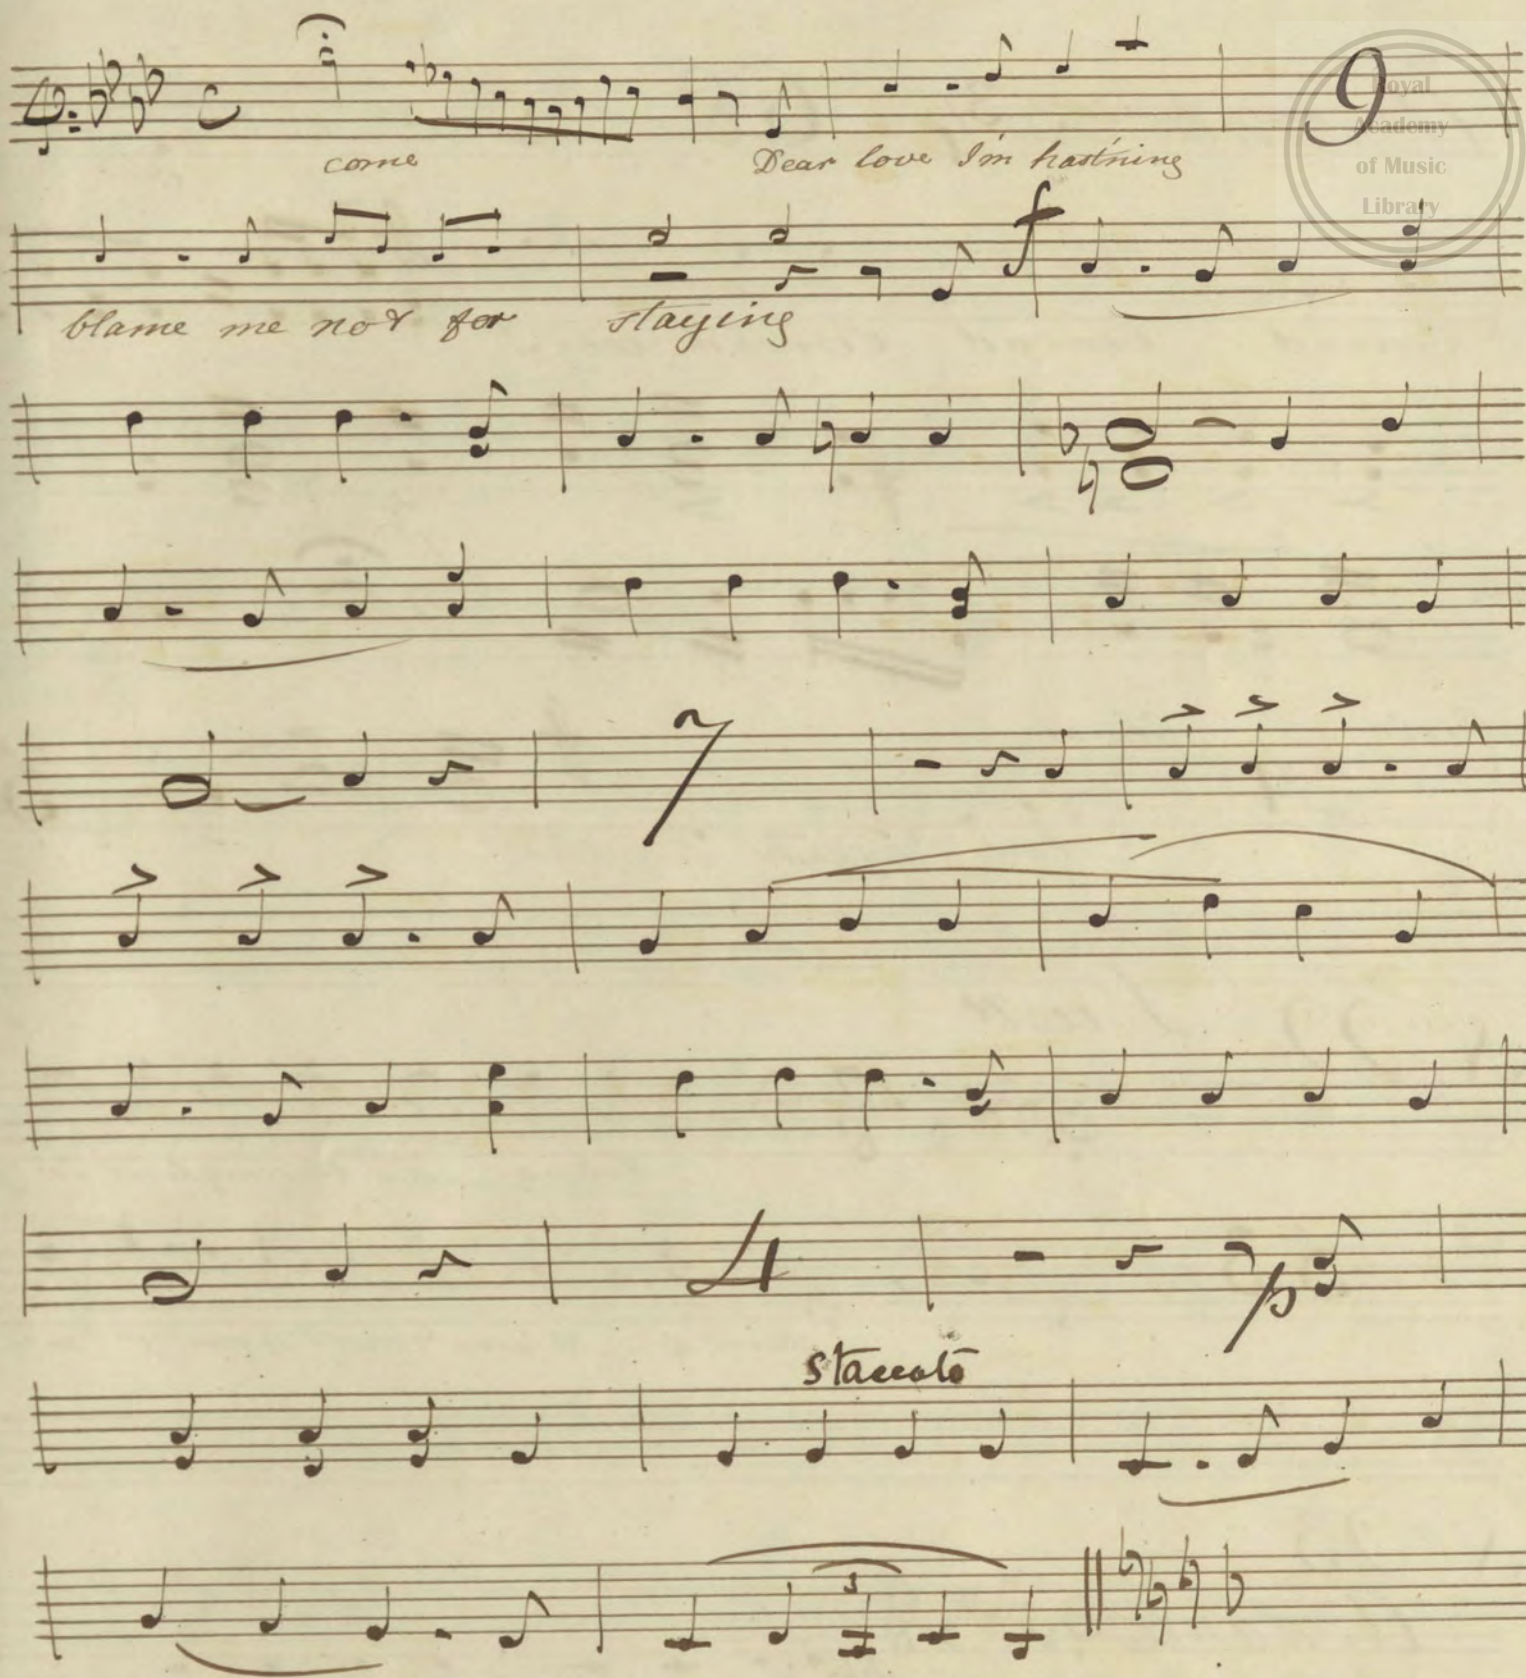 9
Royal
Academy
of Music
Library
come Dear love I'm hast'ning
f
blame me not for staying
7
4
p
staccato
3